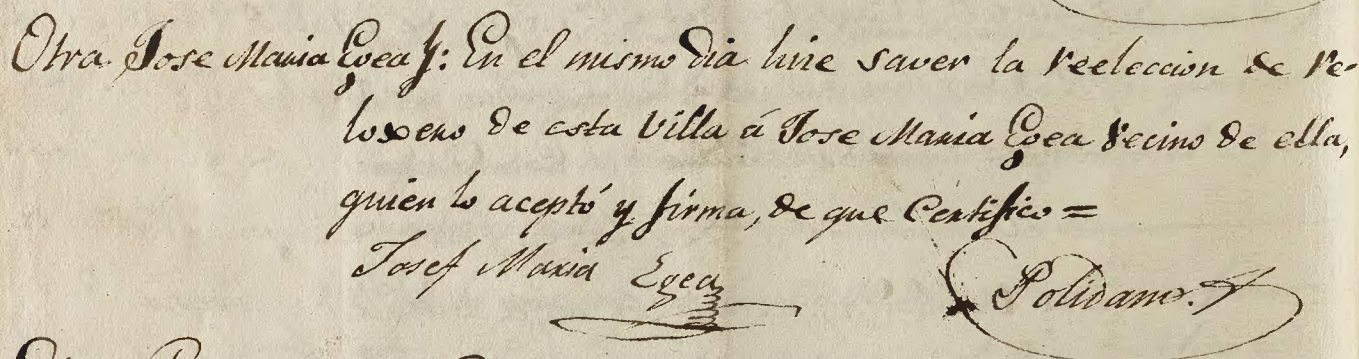 Otra Jose Maria Egea y: En el mismo dia hice saver la reeleccion de re-
loxero de esta Villa á Jose Maria Egea vecino de ella,
quien lo aceptó y firma, de que Certifico =
Josef Maria Egea Polidano.